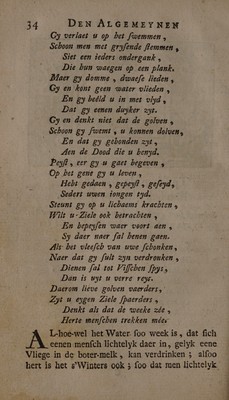 34 DEN ALGEMEYNEN
Gy verlaet u op het swemmen,
Schoon men met grysende stemmen,
Siet een ieders ondergank,
Die hun waegen op een plank.
Maer gy domme, dwaese lieden,
Gy en kont geen water vlieden,
En gy beëld u in met vlyd,
Dat gy eenen duyker zyt.
Gy en denkt niet dat de golven,
Schoon gy swemt, u konnen dolven,
En dat gy gebonden zyt,
Aen de Dood die u benyd.
Peyst, eer gy u gaet begeven,
Op het gene gy u leven,
Hebt gedaen, gepeyst, geseyd,
Sedert uwen iongen tyd.
Steunt gy op u lichaems krachten,
Wilt u-Ziele ook betrachten,
En bepeysen waer voort aen,
Sy daer naer sal henen gaen.
Als het vleesch van uwe schonken,
Naer dat gy sult zyn verdronken,
Dienen sal tot Visschen spys,
Dan is uyt u verre reys.
Daerom lieve golven vaerders,
Zyt u eygen Ziele spaerders,
Denkt als dat de weeke zée,
Herte menschen trekken mée.
AL-hoe-wel het Water soo week is, dat sich
eenen mensch lichtelyk daer in, gelyk eene
Vliege in de boter-melk, kan verdrinken; alsoo
hert is het s'Winters ook; soo dat men lichtelyk